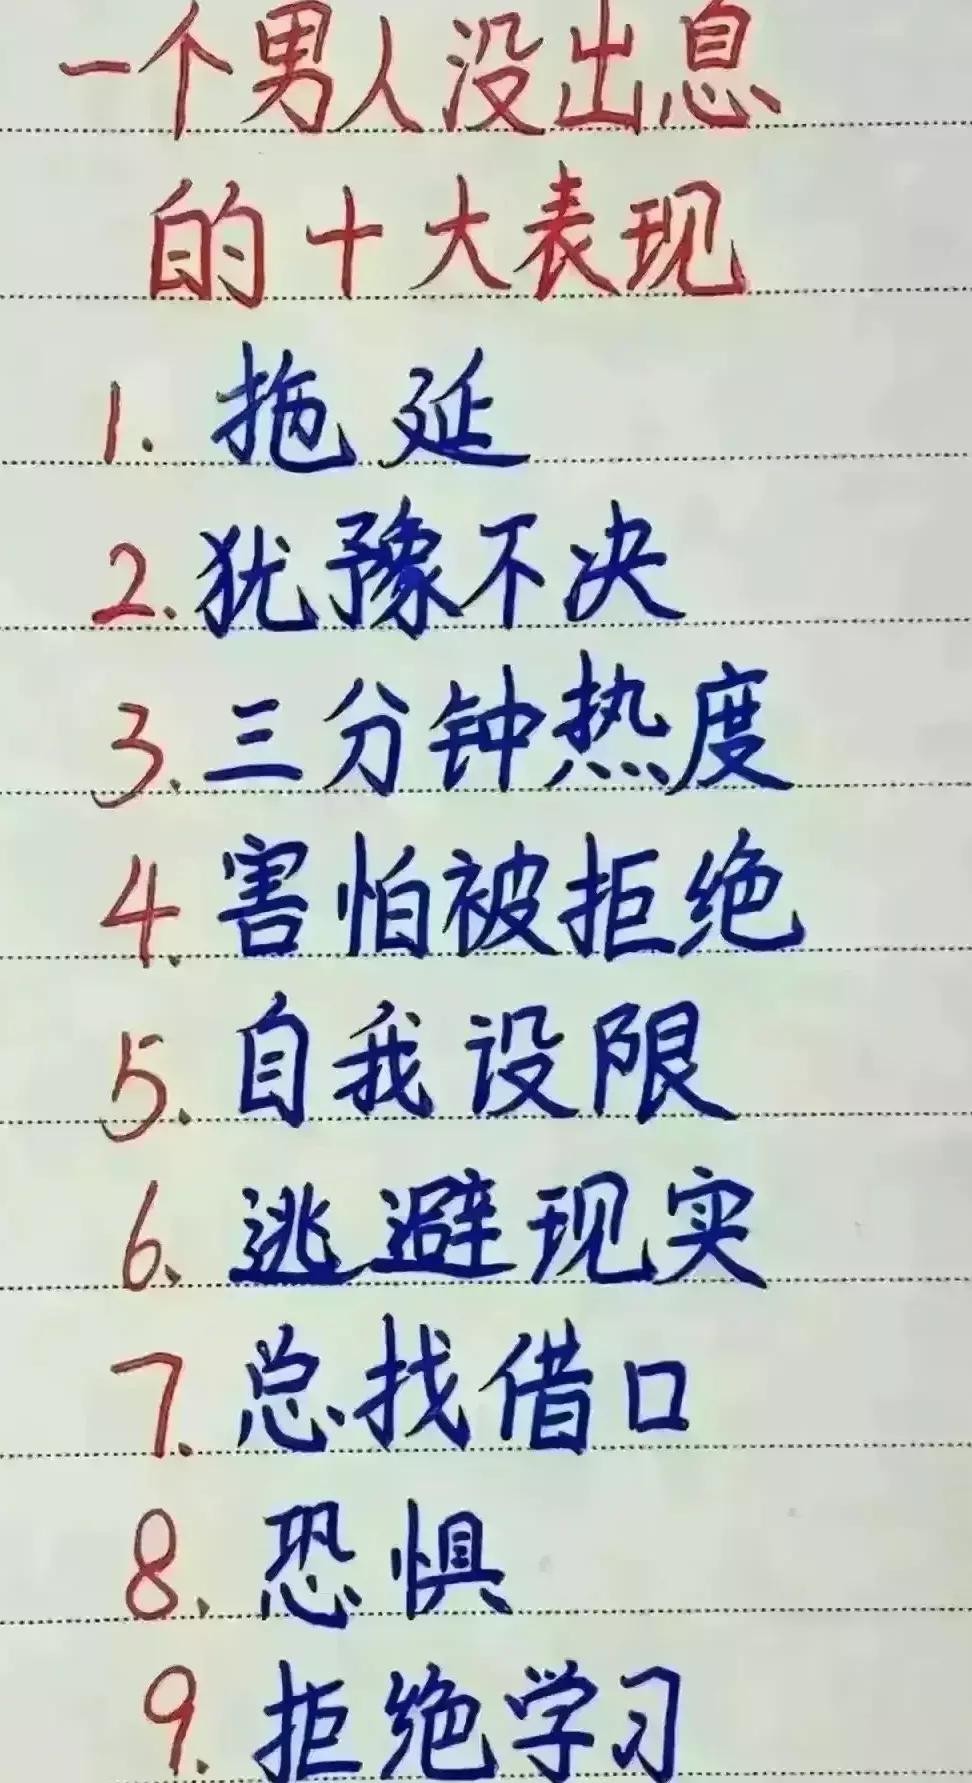 一个男人没出息
的十大表现
1. 拖延
2. 犹豫不决
3. 三分钟热度
4. 害怕被拒绝
5. 自我设限
6. 逃避现实
7. 总找借口
8. 恐惧
9. 拒绝学习